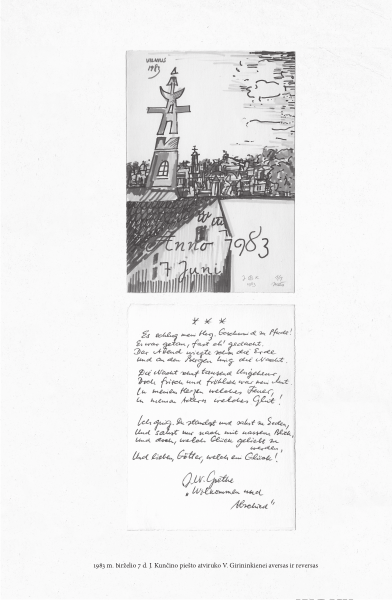 VILNIUS
1983
Anno 1983
7 Juni
* * *
Es schlug mein Herz. Geschwind zu Pferde!
Es war getan, fast eh' gedacht.
Der Abend wiegte schon die Erde
und an den Bergen hing die Nacht.
Die Nacht schuf tausend Ungeheuer,
Doch frisch und fröhlich war mein Mut.
In meinem Herzen welches Feuer,
in meinen Adern welches Glut!
Ich ging, Du standest und sahst zu Erden,
Und sahst mir nach mit nassem Blick,
und doch, welch Glück geliebt zu
werden,
Und lieben, Götter, welch ein Glück!
J. W. Goethe
„Willkommen und
Abschied"
1983 m. birželio 7 d. J. Kunčino piešto atviruko V. Girininkienei aversas ir reversas